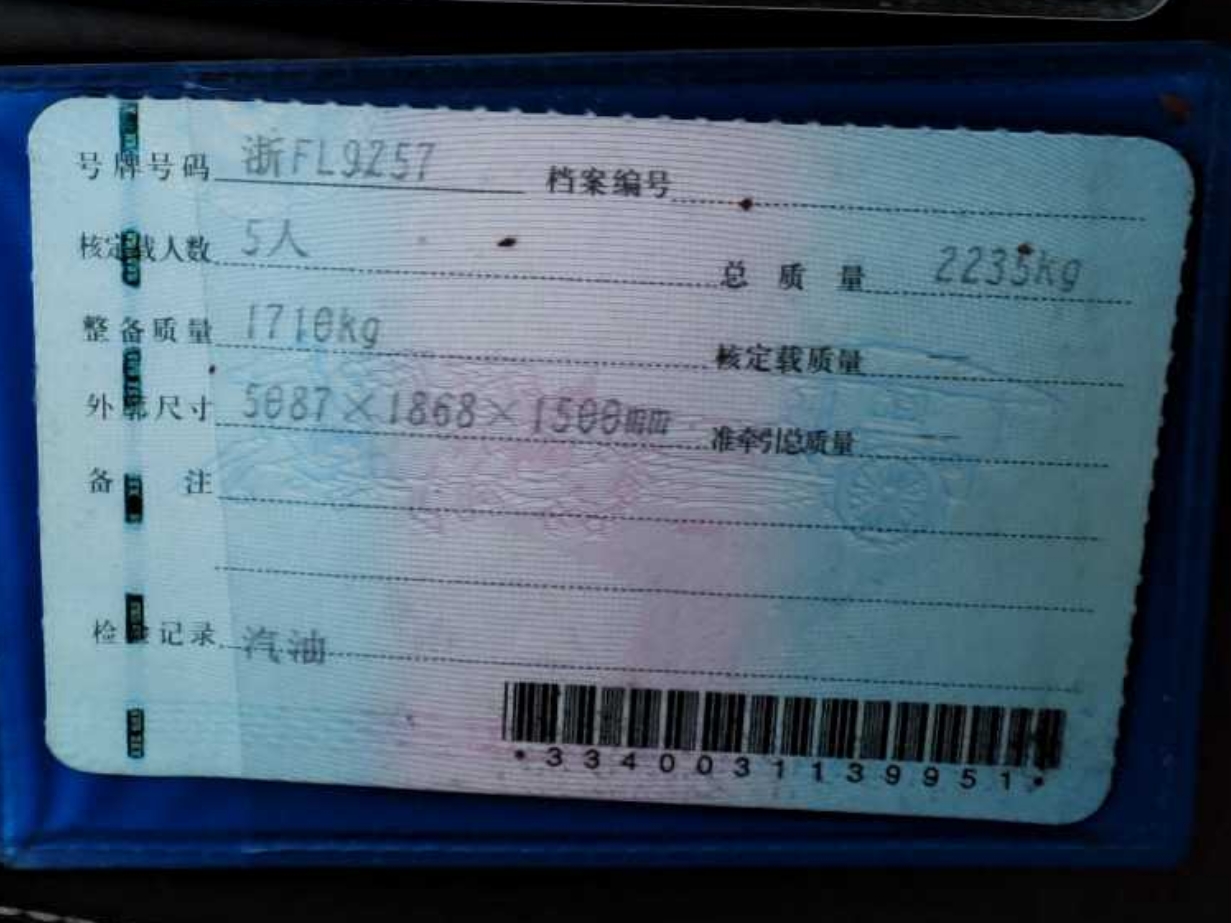 号牌号码 浙FL9Z57 档案编号
核定载人数 5人 总质量 2235kg
整备质量 1710kg 核定载质量 —
外廓尺寸 5087×1868×1500mm 准牵引总质量 —
备注
检验记录 汽油
*3340031139951*